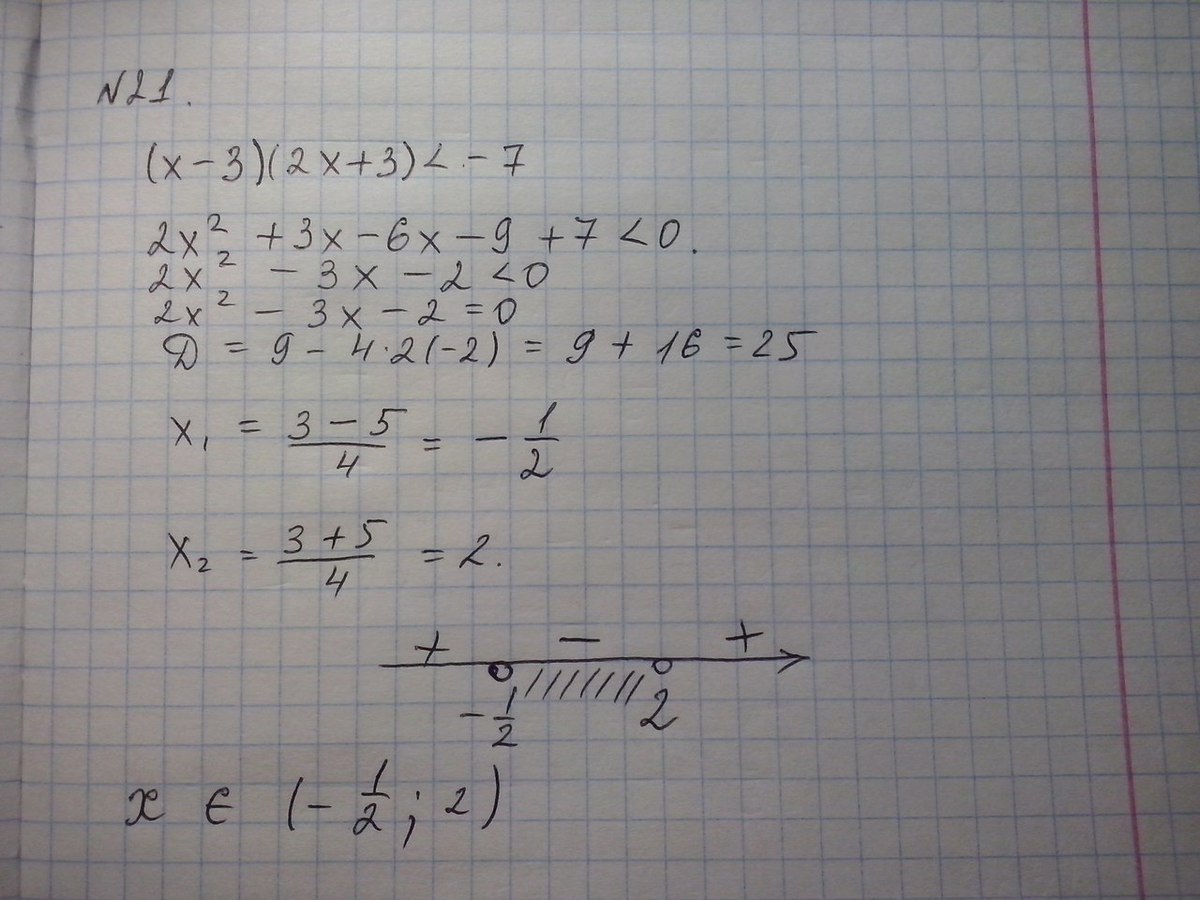 N21.
(x-3)(2x+3)<-7
2x² +3x-6x-9+7<0.
2x² -3x-2<0
2x² -3x-2=0
D = 9-4·2(-2) = 9+16=25
x₁ = (3-5)/4 = -1/2
x₂ = (3+5)/4 = 2.
+ − +
-1/2 2
x ∈ (-1/2; 2)